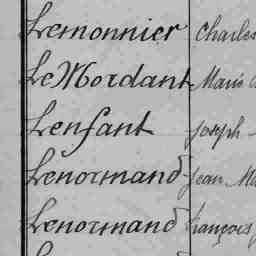 Lemonnier Charles
Le Mordant Marie
Lenfant Joseph
Lenormand Jean Ma
Lenormand François